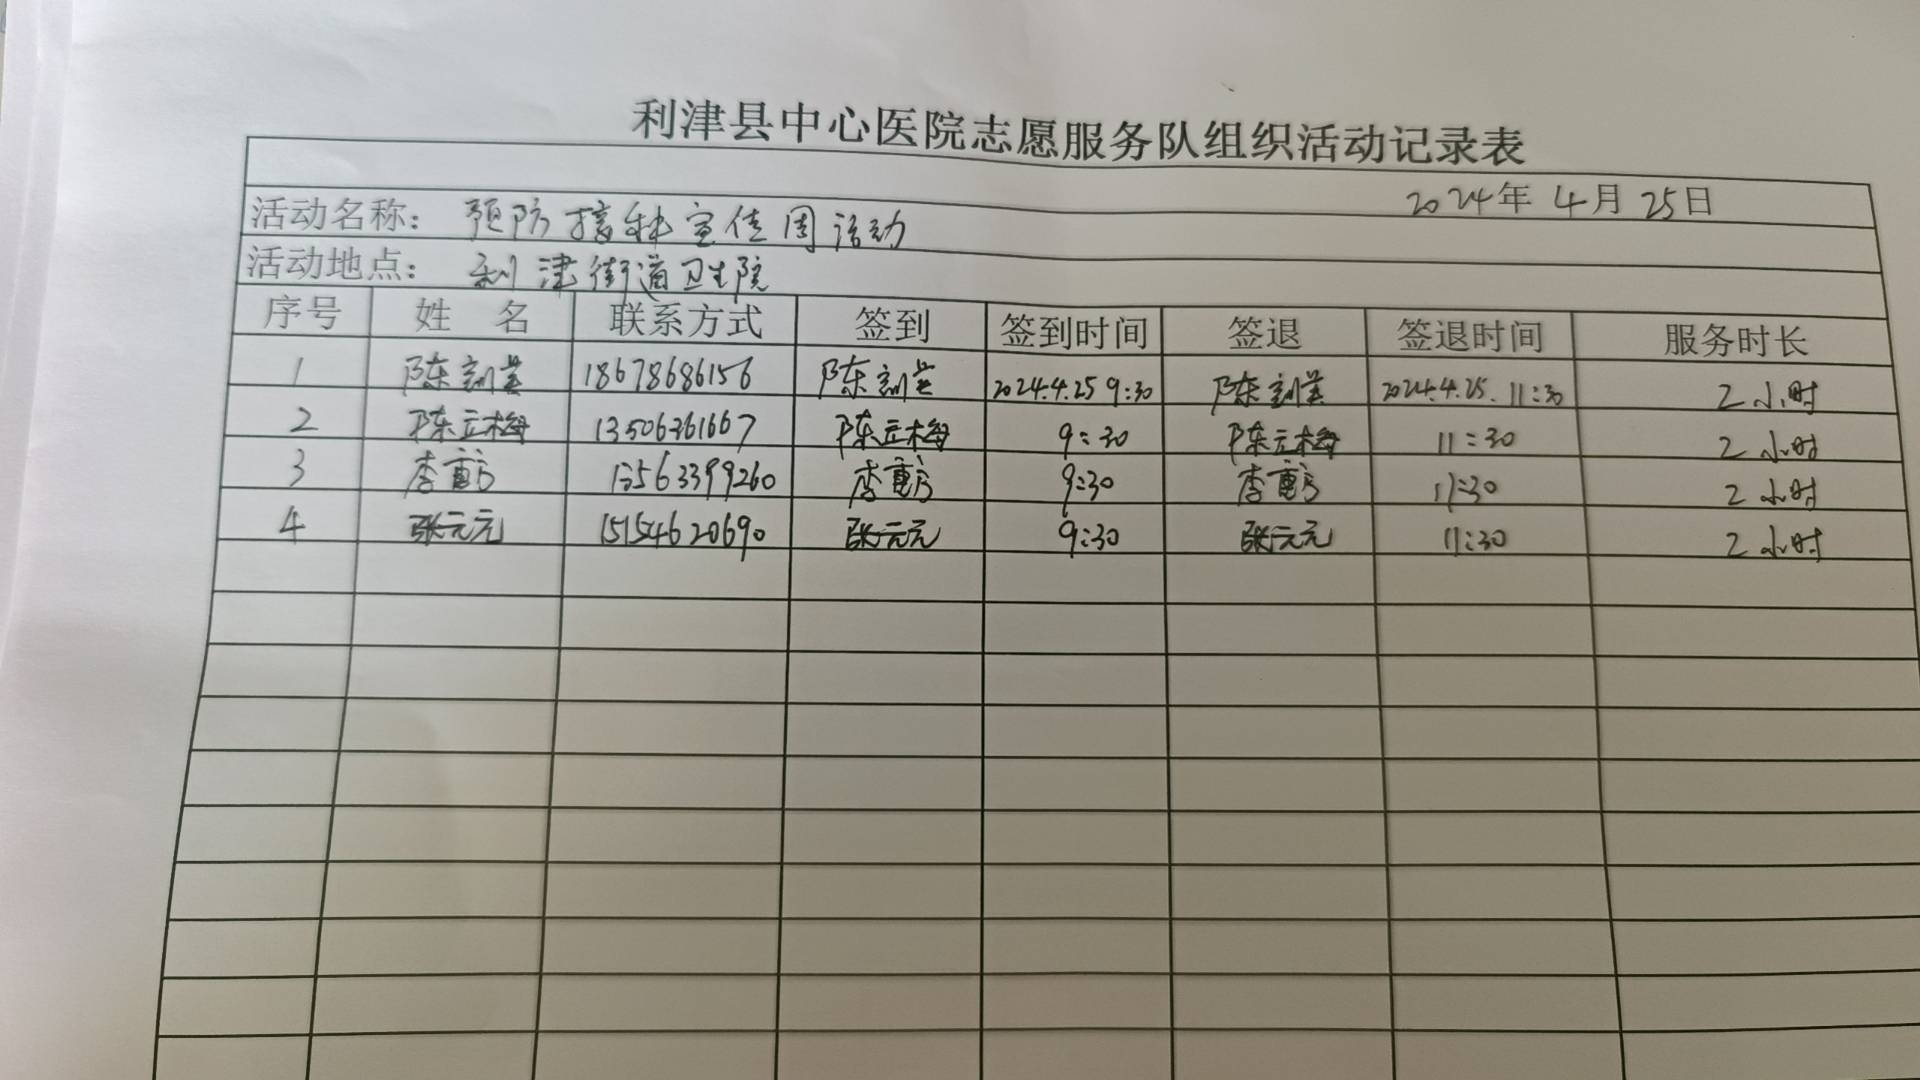 利津县中心医院志愿服务队组织活动记录表
2024年 4月 25日
活动名称： 预防接种宣传周活动
活动地点： 利津街道卫生院
序号 姓 名 联系方式 签到 签到时间 签退 签退时间 服务时长
1 陈 18678686156 陈 2024.4.25 9:30 陈 2024.4.25. 11:30 2小时
2 陈立梅 13506361667 陈立梅 9:30 陈立梅 11:30 2小时
3 李 15563399260 李 9:30 李 11:30 2小时
4 张元元 15154620690 张元元 9:30 张元元 11:30 2小时